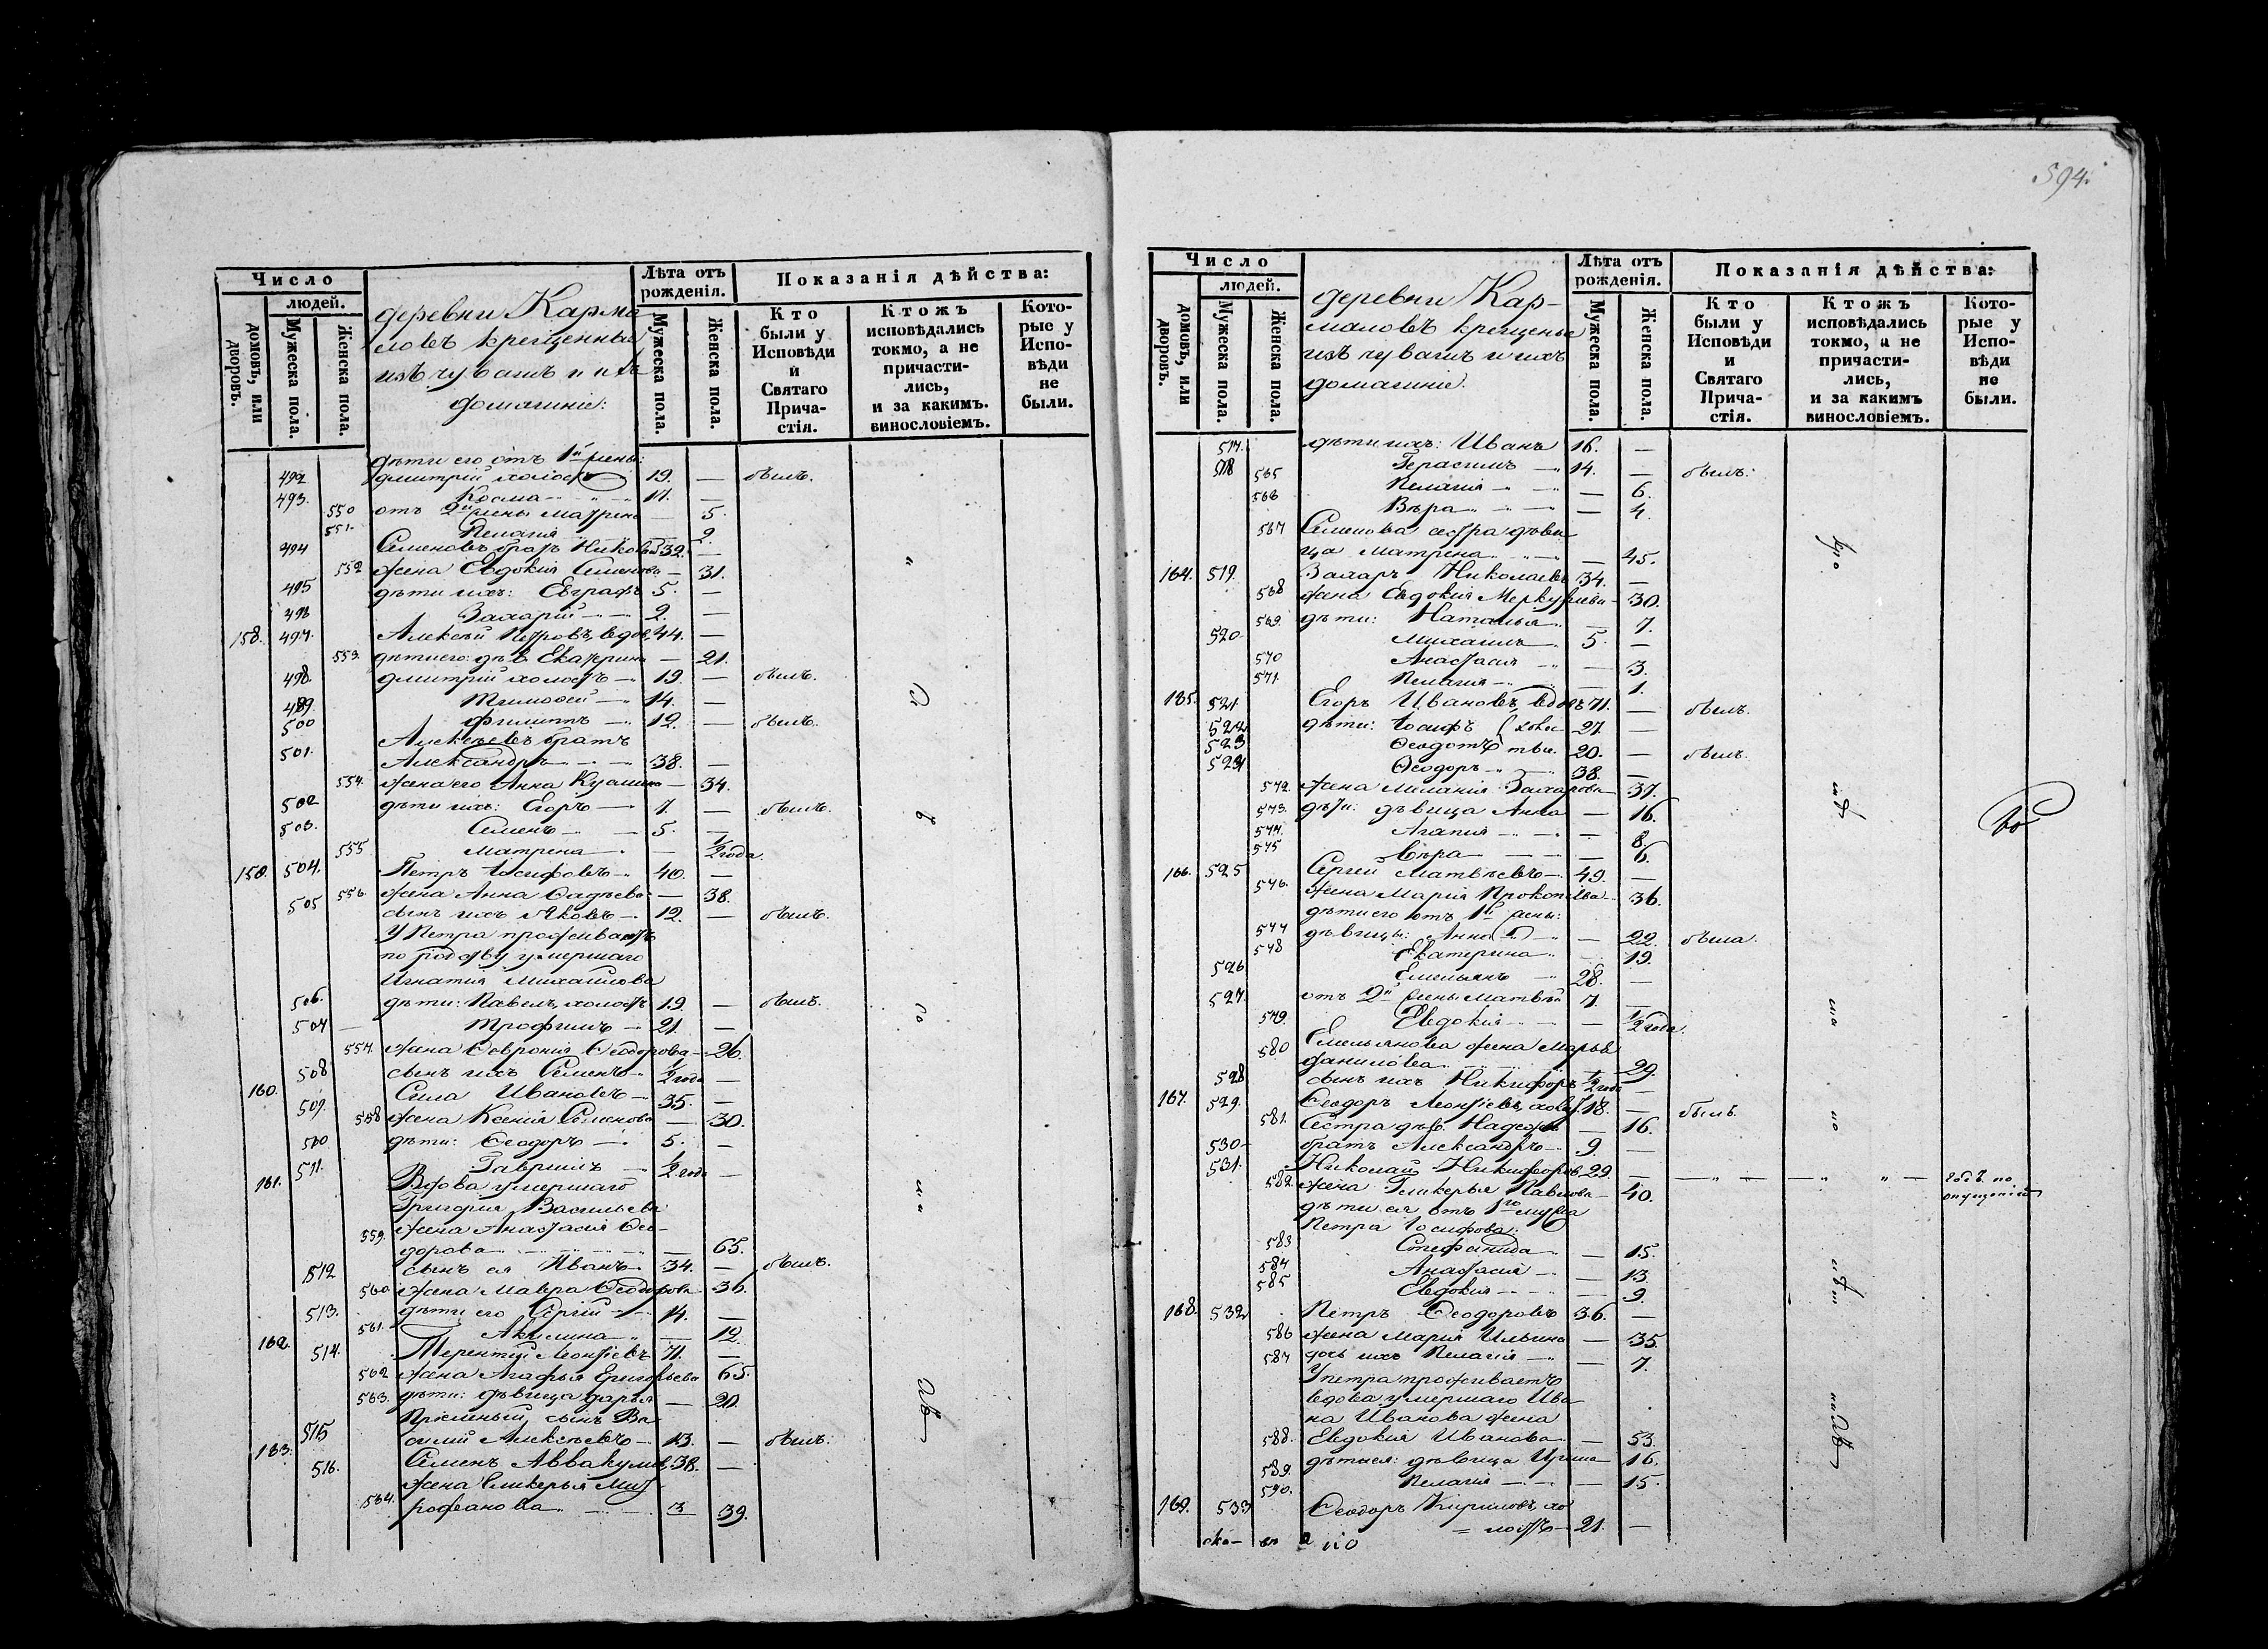 594.
Число
людей.
домовъ, или дворовъ.
Мужеска пола.
Женска пола.
деревни Карма
ловъ крещенные
изъ чувашъ и ихъ
домашніе:
Лѣта отъ рожденія.
Мужеска пола.
Женска пола.
Показанія дѣйства:
Кто были у Исповѣди и Святаго Причастія.
Ктожъ исповѣдались токмо, а не причастились, и за какимъ. винословіемъ.
Которые у Исповѣди не были.
дѣти его отъ 1й жены:
492 Дмитрій холостъ 19. — былъ.
493. Косма — 17. —
550 отъ 2й жены Матрена — 5.
551. Пелагія — 2.
494 Семеновъ братъ Николай 32. —
552 жена Евдокія Семенова — 31.
495 дѣти ихъ: Евграфъ 5. —
496 Захарій — 2. —
158. 497. Алексѣй Петровъ, вдов. 44. —
553. дѣти его: дѣв. Екатерина — 21.
498. Дмитрій холостъ — 19. — былъ.
499. Тимофей — 14. —
500 Филиппъ — 12. — былъ.
Алексѣевъ братъ
501. Александръ — 38. —
554. жена его Анна Кузмина — 34.
502 дѣти ихъ: Егоръ — 7. — былъ.
503. Семенъ — 5. —
555 Матрена — 1/2 года.
159. 504. Петръ Іосифовъ — 40. —
556. жена Анна Фадѣева — 38.
505 сынъ ихъ Яковъ — 12. — былъ.
У Петра проживаютъ
по родству умершаго
Игнатія Михайлова
506. дѣти: Павелъ, холостъ 19 — былъ.
507 — Трофимъ — 21. —
557. жена Февронія Феодорова — 26.
508 сынъ ихъ Семенъ — 1/2 года —
160. 509. Сила Ивановъ — 35. —
558 жена Ксенія Семенова — 30.
510 дѣти: Феодоръ — 5. —
511. Гавріилъ — 1/2 года —
161. Вдова умершаго
Григорія Васильева
559. жена Анастасія Фео-
дорова — 65.
512 сынъ ея Иванъ — 34. — былъ.
560 жена Мавра Феодорова 36.
513. дѣти его Сергій — 14. —
561. Акулина „ — 12.
162. 514. Терентій Леонтіевъ 71. —
562 жена Агафья Григорьева 65.
563. дѣти: дѣвица Дарья — 20.
Пріемный сынъ Ва-
515 силій Алексѣевъ — 13. — былъ.
163. 516. Семенъ Аввакумовъ 38. —
жена Гликерья Мит-
564. рофанова — 39.
Число
людей.
домовъ, или дворовъ.
Мужеска пола.
Женска пола.
деревни Кар-
маловъ крещеные
изъ чувашъ и ихъ
домашніе.
Лѣта отъ рожденія.
Мужеска пола.
Женска пола.
Показанія дѣйства:
Кто были у Исповѣди и Святаго Причастія.
Ктожъ исповѣдались токмо, а не причастились, и за какимъ винословіемъ.
Которые у Исповѣди не были.
517. дѣти ихъ: Иванъ 16. —
518 Герасимъ — 14. — былъ:
565 Пелагія — 6.
566 Вѣра — 4.
567 Семенова сестра дѣви
ца Матрена — 45.
164. 519. Захаръ Николаевъ 34. —
568 жена Евдокія Меркурьева — 30.
569. дѣти: Наталья — 7.
520 Михаилъ 5. —
570 Анастасія — 3.
571. Пелагія — 1.
165. 521 Егоръ Ивановъ, вдовъ 71. — былъ.
522 дѣти: Іосифъ 27. —
523 Феодотъ 20. — былъ.
524 Феодоръ — 38. —
572. жена Меланія Захарова — 37.
573. дѣти: дѣвица Анна — 16.
574. Агапия — 8.
575 Вѣра — 6.
166. 525 Сергей Матвѣевъ — 49. —
576. жена Марія Прокопьева — 36.
дѣти его отъ 1й жены:
577 дѣвицы: Анна — 22. была.
578 Екатерина — 19.
526 Емельянъ — 28. —
527. отъ 2й жены Матвѣй 7. —
579. Евдокія — 1/2 года.
580 Емельянова жена Марья
Данилова — 29.
528 сынъ ихъ Никифоръ 1/2 года —
167. 529. Феодоръ Леонтіевъ, холост. 18. — былъ
581. Сестра дѣв. Надежда — 16.
530 братъ Александръ — 9. —
531. Николай Никифоров. 29. —
582. жена Гликерья Павлова — 40.
дѣти ея отъ 1го мужа
Петра Іосифова:
583 Стефанида — 15.
584 Анастасія — 13.
585 Евдокія — 9.
168. 532 Петръ Феодоровъ 36. —
586 жена Марія Ильина — 35.
587 дочь ихъ Пелагія — 7.
У Петра проживаетъ
вдова умершаго Ива
на Иванова жена
588. Евдокія Иванова — 53.
589. дѣти ея: дѣвица Ирина — 16.
590. Пелагія — 15.
169. 533 Феодоръ Кириловъ, хо
= лостъ — 21. —